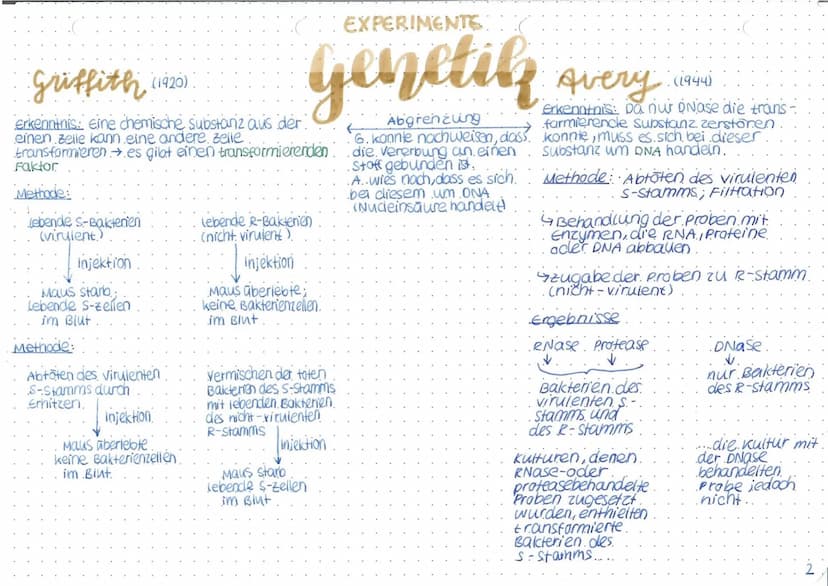 EXPERIMENTE
Genetik
Griffith (1920)
Erkenntnis: Eine chemische Substanz aus der
einen Zelle kann eine andere Zelle
transformieren → es gibt einen transformierenden
Faktor
Methode:
lebende S-Bakterien
(virulent)
Injektion
Maus starb;
lebende S-Zellen
im Blut
lebende R-Bakterien
(nicht virulent)
Injektion
Maus überlebte;
keine Bakterienzellen
im Blut
Methode:
Abtöten des virulenten
S-Stamms durch
Erhitzen
Injektion
Maus überlebte
keine Bakterienzellen
im Blut
Vermischen der toten
Bakterien des S-Stamms
mit lebenden Bakterien
des nicht-virulenten
R-Stamms
Injektion
Maus starb
lebende S-Zellen
im Blut
Abgrenzung
G. konnte nachweisen, dass
die Vererbung an einen
Stoff gebunden ist.
A. wies nach, dass es sich
bei diesem um DNA
(Nucleinsäure handelt)
Avery (1944)
Erkenntnis: Da nur DNase die trans-
formierende Substanz zerstören
konnte, muss es sich bei dieser
Substanz um DNA handeln.
Methode: Abtöten des virulenten
S-Stamms; Filtration
↳ Behandlung der Proben mit
Enzymen, die RNA, Proteine
oder DNA abbauen
↳ Zugabe der Proben zu R-Stamm
(nicht-virulent)
Ergebnisse
RNase Protease
Bakterien des
virulenten S-
Stamms und
des R-Stamms
DNase
nur Bakterien
des R-Stamms
Kulturen, denen
RNase- oder
proteasebehandelte
Proben zugesetzt
wurden, enthielten
transformierte
Bakterien des
S-Stamms...
...die Kultur mit
der DNase
behandelten
Probe jedoch
nicht...
2